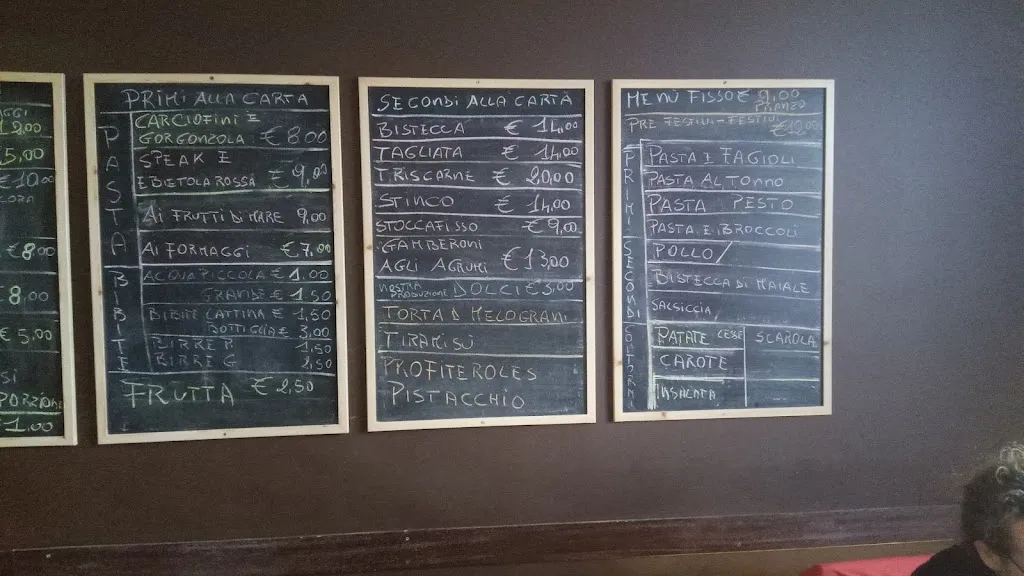 AGGI
€ 12,00
5,00
€ 10,00
€ 8,00
€ 8,00
€ 5,00
PORZIONE
€ 1,00
PRIMI ALLA CARTA
PASTA
CARCIOFINI E
GORGONZOLA € 8,00
SPEAK E
E BIETOLA ROSSA € 9,00
AI FRUTTI DI MARE 9,00
AI FORMAGGI € 7,00
BIBITE
ACQUA PICCOLA € 1,00
GRANDE € 1,50
BIBITE LATTINA € 1,50
BOTTIGLIA € 3,00
BIRRE P 1,50
BIRRE G 2,50
FRUTTA € 2,50
SECONDI ALLA CARTA
BISTECCA € 14,00
TAGLIATA € 14,00
TRISCARNE € 20,00
STINCO € 14,00
STOCCAFISSO € 9,00
GAMBERONI
AGLI AGRUMI € 13,00
NOSTRA
PRODUZIONE DOLCI € 3,00
TORTA D MELOGRANI
TIRAMISÙ
PROFITEROLES
PISTACCHIO
MENÙ FISSO € 9,00
PRANZO
PRE FESTIVI-FESTIVI
€ 12,00
PRIMI
PASTA E FAGIOLI
PASTA AL TONNO
PASTA PESTO
PASTA E BROCCOLI
SECONDI
POLLO /
BISTECCA DI MAIALE
SALSICCIA
CONTORNI
PATATE LESSE SCAROLA
CAROTE
INSALATA